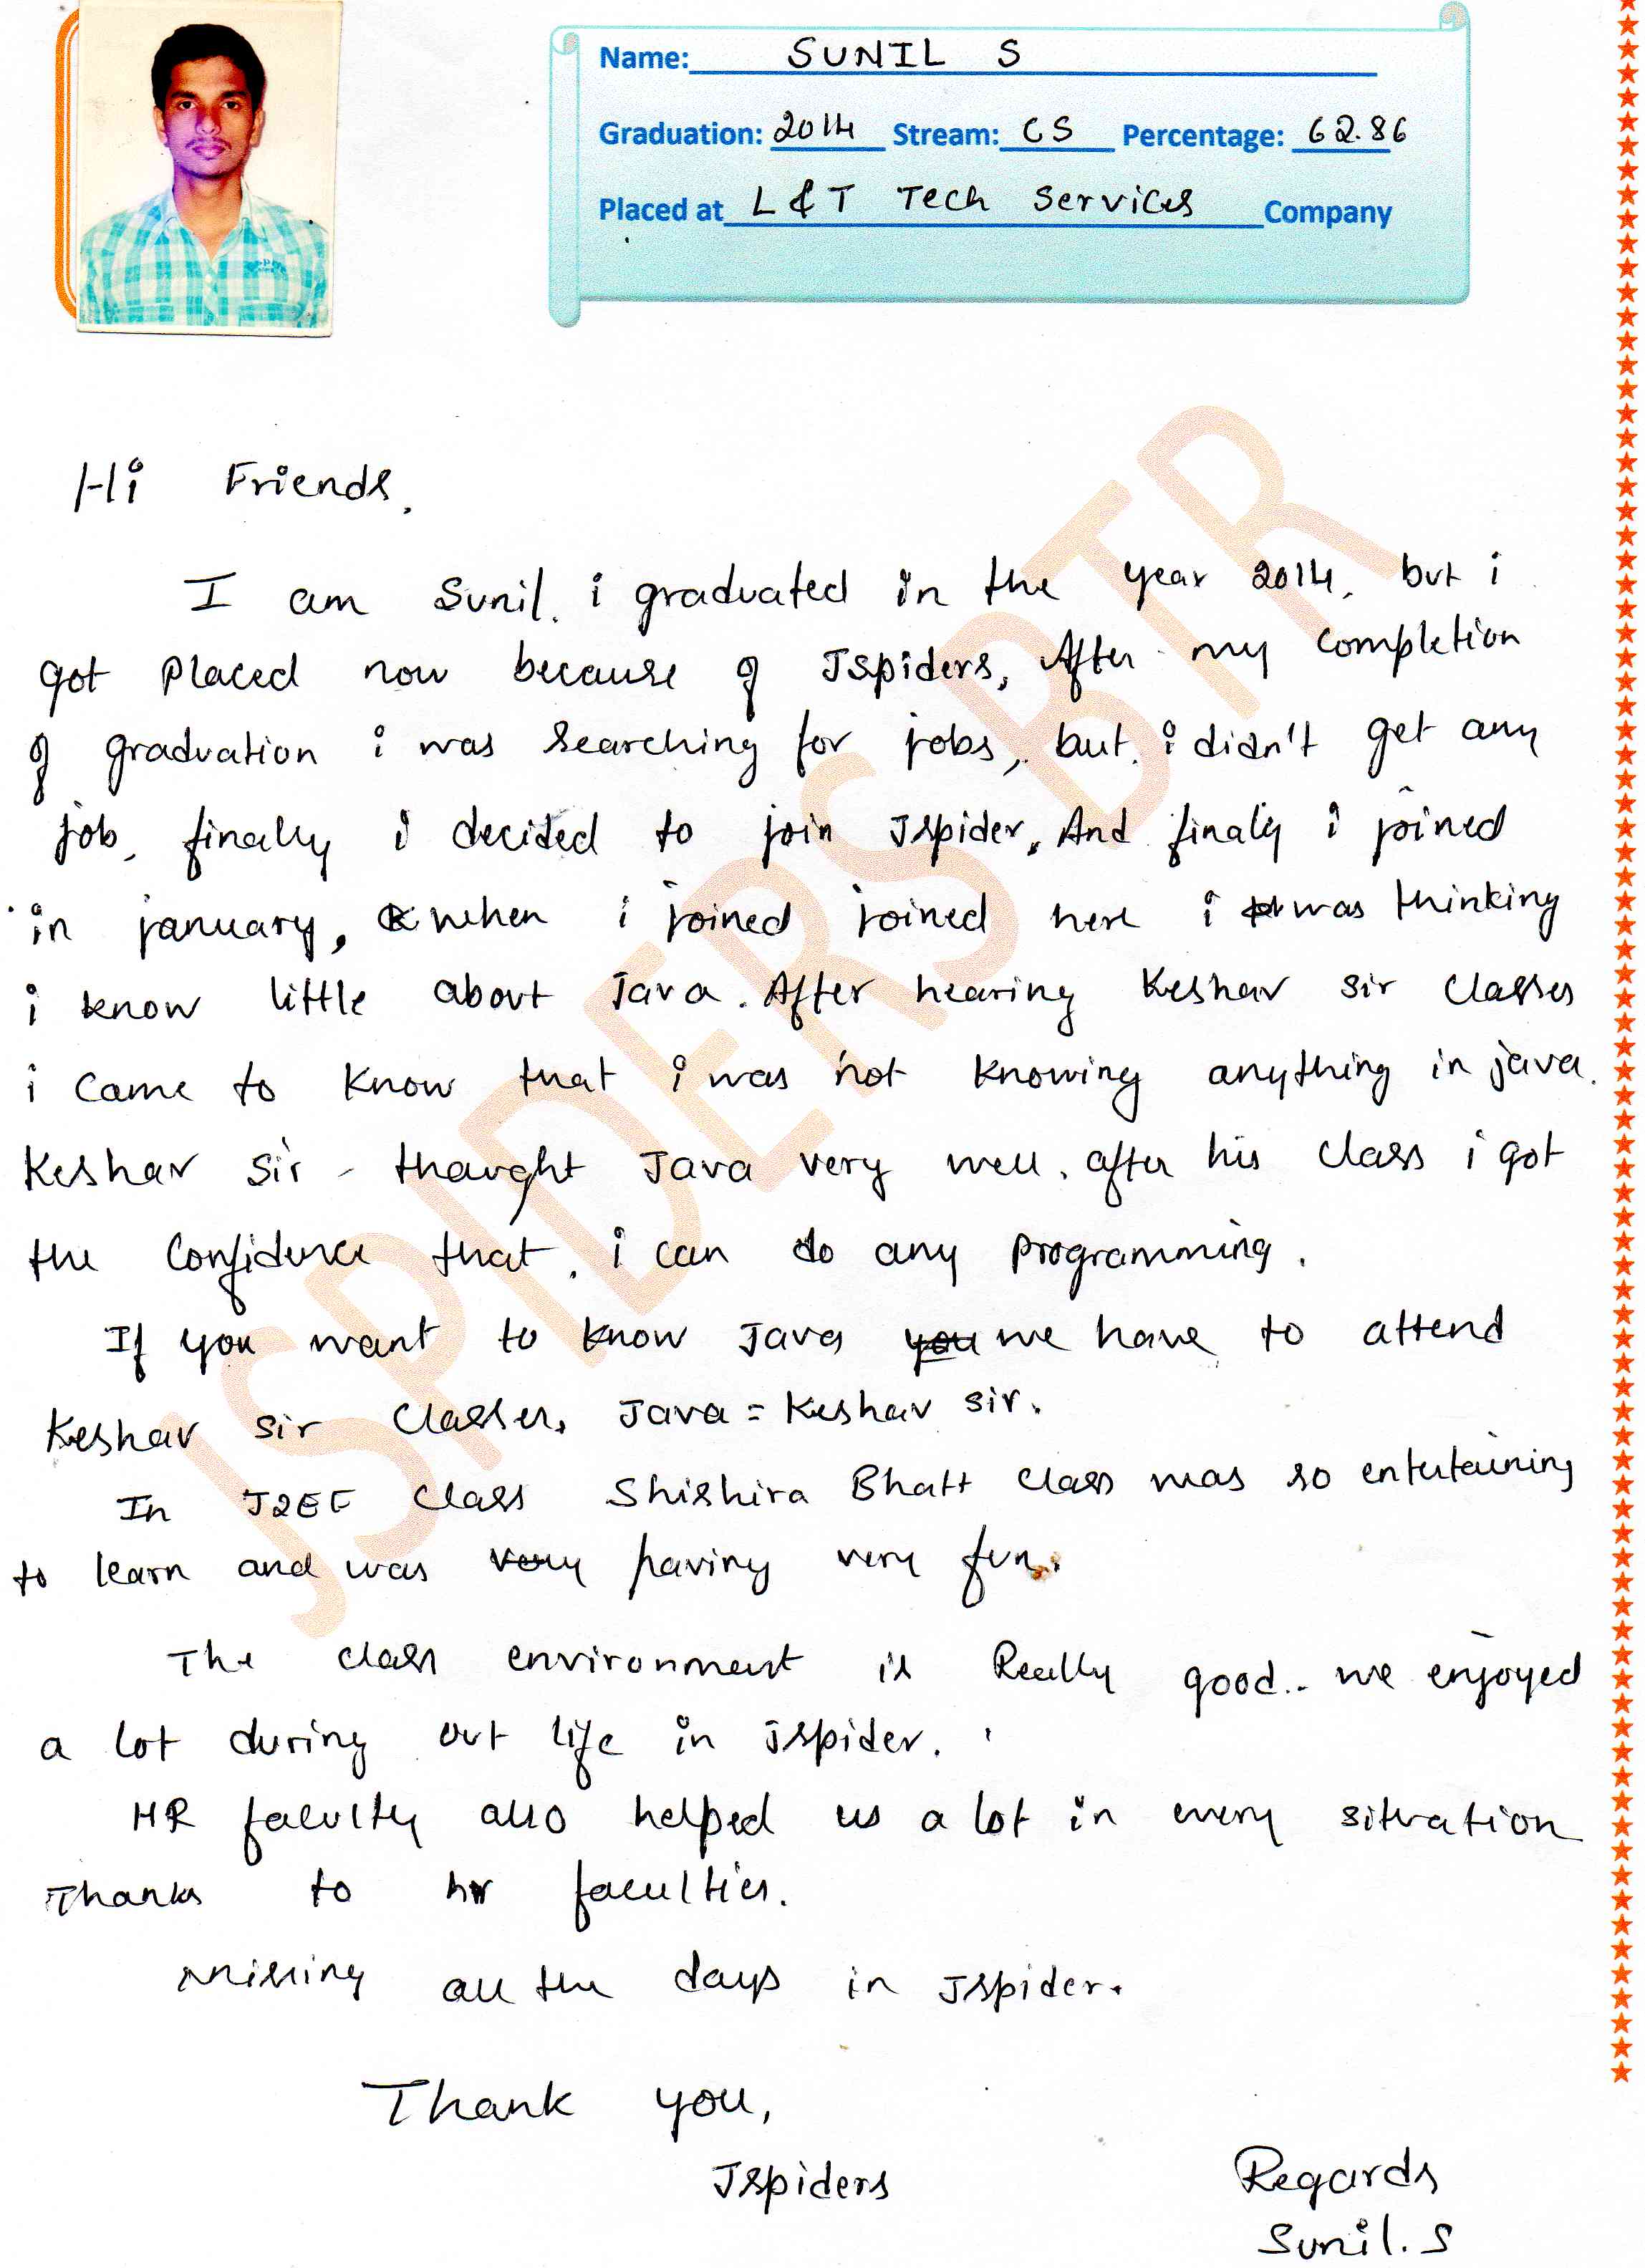 Name: SUNIL S
Graduation: 2014 Stream: CS Percentage: 62.86
Placed at L&T Tech Services Company
JSPIDERS BTR
Hi Friends,
I am Sunil. i graduated in the year 2014, but i
got placed now because of Jspiders, After my completion
of graduation i was searching for jobs, but i didn't get any
job, finally i decided to join Jspider, And finaly i joined
in january, when i joined joined here i was thinking
i know little about Java. After hearing Keshav sir classes
i came to know that i was not knowing anything in java.
Keshav Sir thaught Java very well. after his class i got
the Confidence that i can do any programming.
If you want to know Java you we have to attend
Keshav sir Classes, Java = Keshav sir.
In J2EE Class Shishira Bhatt class was so entertaining
to learn and was very having very fun.
The class environment is Really good.. we enjoyed
a lot during out life in jspider.
HR faculty also helped us a lot in every situation
Thanks to hr faculties.
missing all the days in Jspider.
Thank you,
Jspiders
Regards
Sunil. S